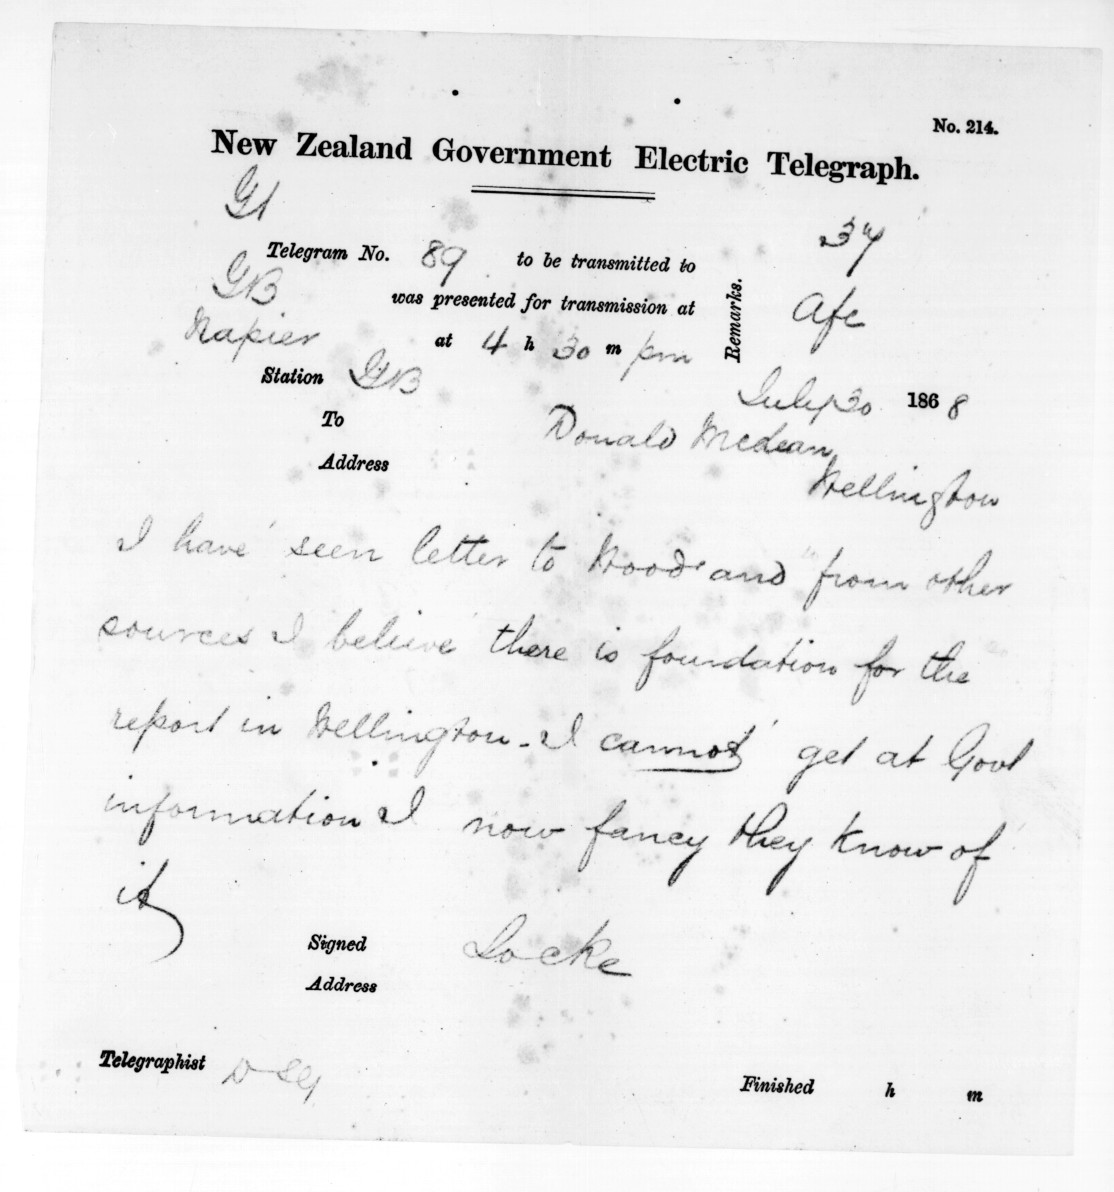 No. 214.
New Zealand Government Electric Telegraph.
Telegram No. 89 to be transmitted to
GB
was presented for transmission at
Napier at 4 h 30 m pm
Remarks.
Station GB
July 30 1868
To Donald McLean
Address Wellington
I have seen letter to Wood and from other
sources I believe there is foundation for the
report in Wellington - I cannot get at Govt
information I now fancy they know of
it
Signed Locke
Address
Telegraphist
Finished h m